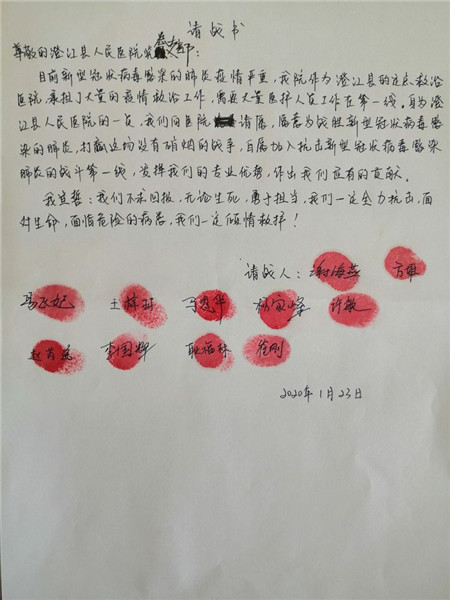 请战书
尊敬的澄江县人民医院党总支部:
目前新型冠状病毒感染的肺炎疫情严重,我院作为澄江县的定点救治
医院,承担了大量的疫情救治工作,需要大量医护人员工作在第一线。身为澄
江县人民医院的一员,我们向医院请愿,愿意为战胜新型冠状病毒感
染的肺炎,打赢这场没有硝烟的战争,自愿加入抗击新型冠状病毒感染
肺炎的战斗第一线,发挥我们的专业优势,作出我们应有的贡献。
我宣誓:我们不求回报,无论生死,勇于担当,我们一定全力抗击,面
对生命,面临危险的病患,我们一定倾情救护!
请战人: 谢海燕 方軍
王 马 华 杨家峰 许敏
赵 李国辉 耿福林 徐刚
2020年1月23日